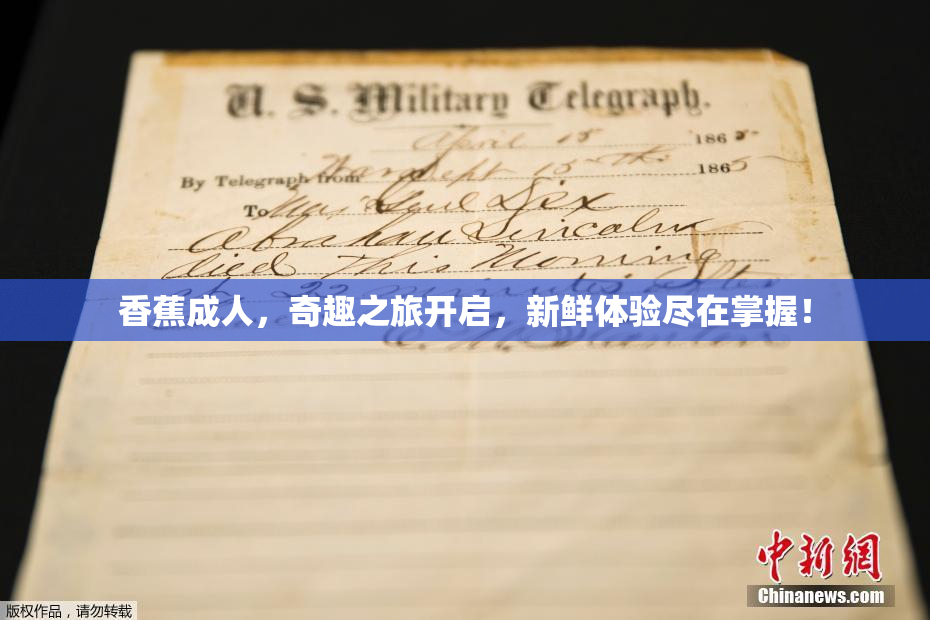 U. S. Military Telegraph.
April 15 1865
By Telegraph from War Dept 15th 1865
To Maj Genl Dix
Abraham Lincoln
died This Morning
at 22 minutes after
香蕉成人，奇趣之旅开启，新鲜体验尽在掌握！
中新网
Chinanews.com
版权作品，请勿转载